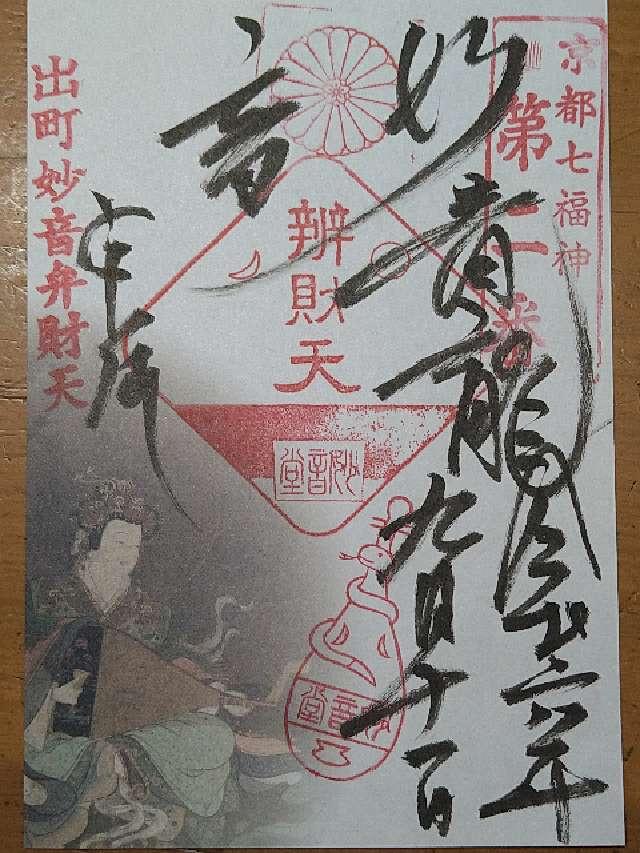 京都七福神
第二番
妙音
青龍
令和六年
九月十一日
辨財天
妙音堂
妙音堂
出町妙音弁財天
奉拝